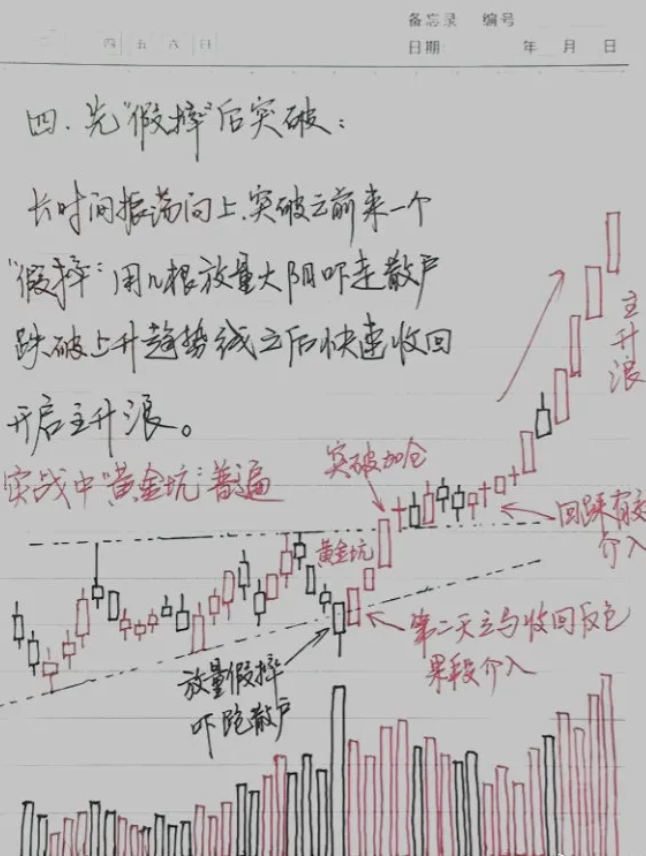 备忘录 编号
四 五 六 日
日期 年 月 日
四、先"假摔"后突破：
长时间振荡向上，突破之前来一个
"假摔"：用几根放量大阴吓走散户
跌破上升趋势线之后快速收回
开启主升浪。
实战中"黄金坑"普遍
突破加仓
主升浪
黄金坑
回踩有效
介入
第二天立马收回反包
果段介入
放量假摔
吓跑散户